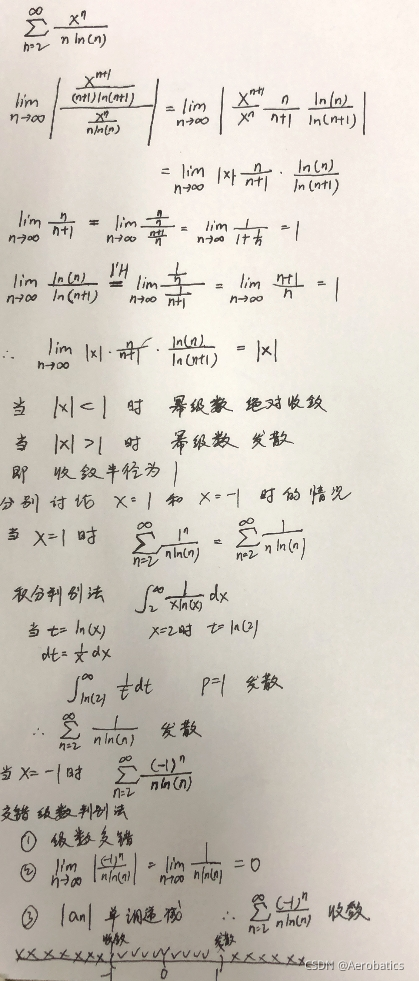 ∑_{n=2}^{∞} x^n / (n ln(n))
lim_{n→∞} | (x^{n+1} / ((n+1) ln(n+1))) / (x^n / (n ln(n))) | = lim_{n→∞} | x^{n+1}/x^n n/(n+1) ln(n)/ln(n+1) |
= lim_{n→∞} |x| n/(n+1) · ln(n)/ln(n+1)
lim_{n→∞} n/(n+1) = lim_{n→∞} (n/n)/((n+1)/n) = lim_{n→∞} 1/(1+1/n) = 1
lim_{n→∞} ln(n)/ln(n+1) =^{l'H} lim_{n→∞} (1/n)/(1/(n+1)) = lim_{n→∞} (n+1)/n = 1
∴ lim_{n→∞} |x| · n/(n+1) · ln(n)/ln(n+1) = |x|
当 |x| < 1 时 幂级数 绝对收敛
当 |x| > 1 时 幂级数 发散
即 收敛半径为 1
分别讨论 x = 1 和 x = -1 时的情况
当 x=1 时 ∑_{n=2}^{∞} 1^n/(n ln(n)) = ∑_{n=2}^{∞} 1/(n ln(n))
积分判别法 ∫_2^∞ 1/(x ln(x)) dx
当 t = ln(x) x=2时 t = ln(2)
dt = 1/x dx
∫_{ln(2)}^∞ 1/t dt P=1 发散
∴ ∑_{n=2}^{∞} 1/(n ln(n)) 发散
当 x=-1 时 ∑_{n=2}^{∞} (-1)^n/(n ln(n))
交错级数判别法
① 级数交错
② lim_{n→∞} |(-1)^n/(n ln(n))| = lim_{n→∞} 1/(n ln(n)) = 0
③ |an| 单调递减 ∴ ∑_{n=2}^{∞} (-1)^n/(n ln(n)) 收敛
收敛 发散
-1 0 1
CSDN @Aerobatics